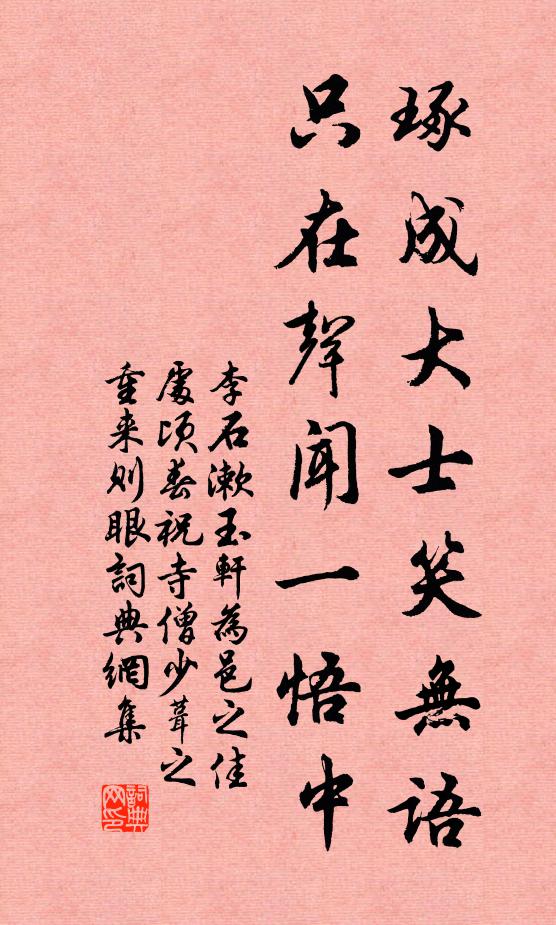 琢成大士笑無語
只在聲聞一悟中
李石漱玉軒為邑之佳
處頃春祝寺僧少葺之
重来则眼詞典網集
詞典
网印